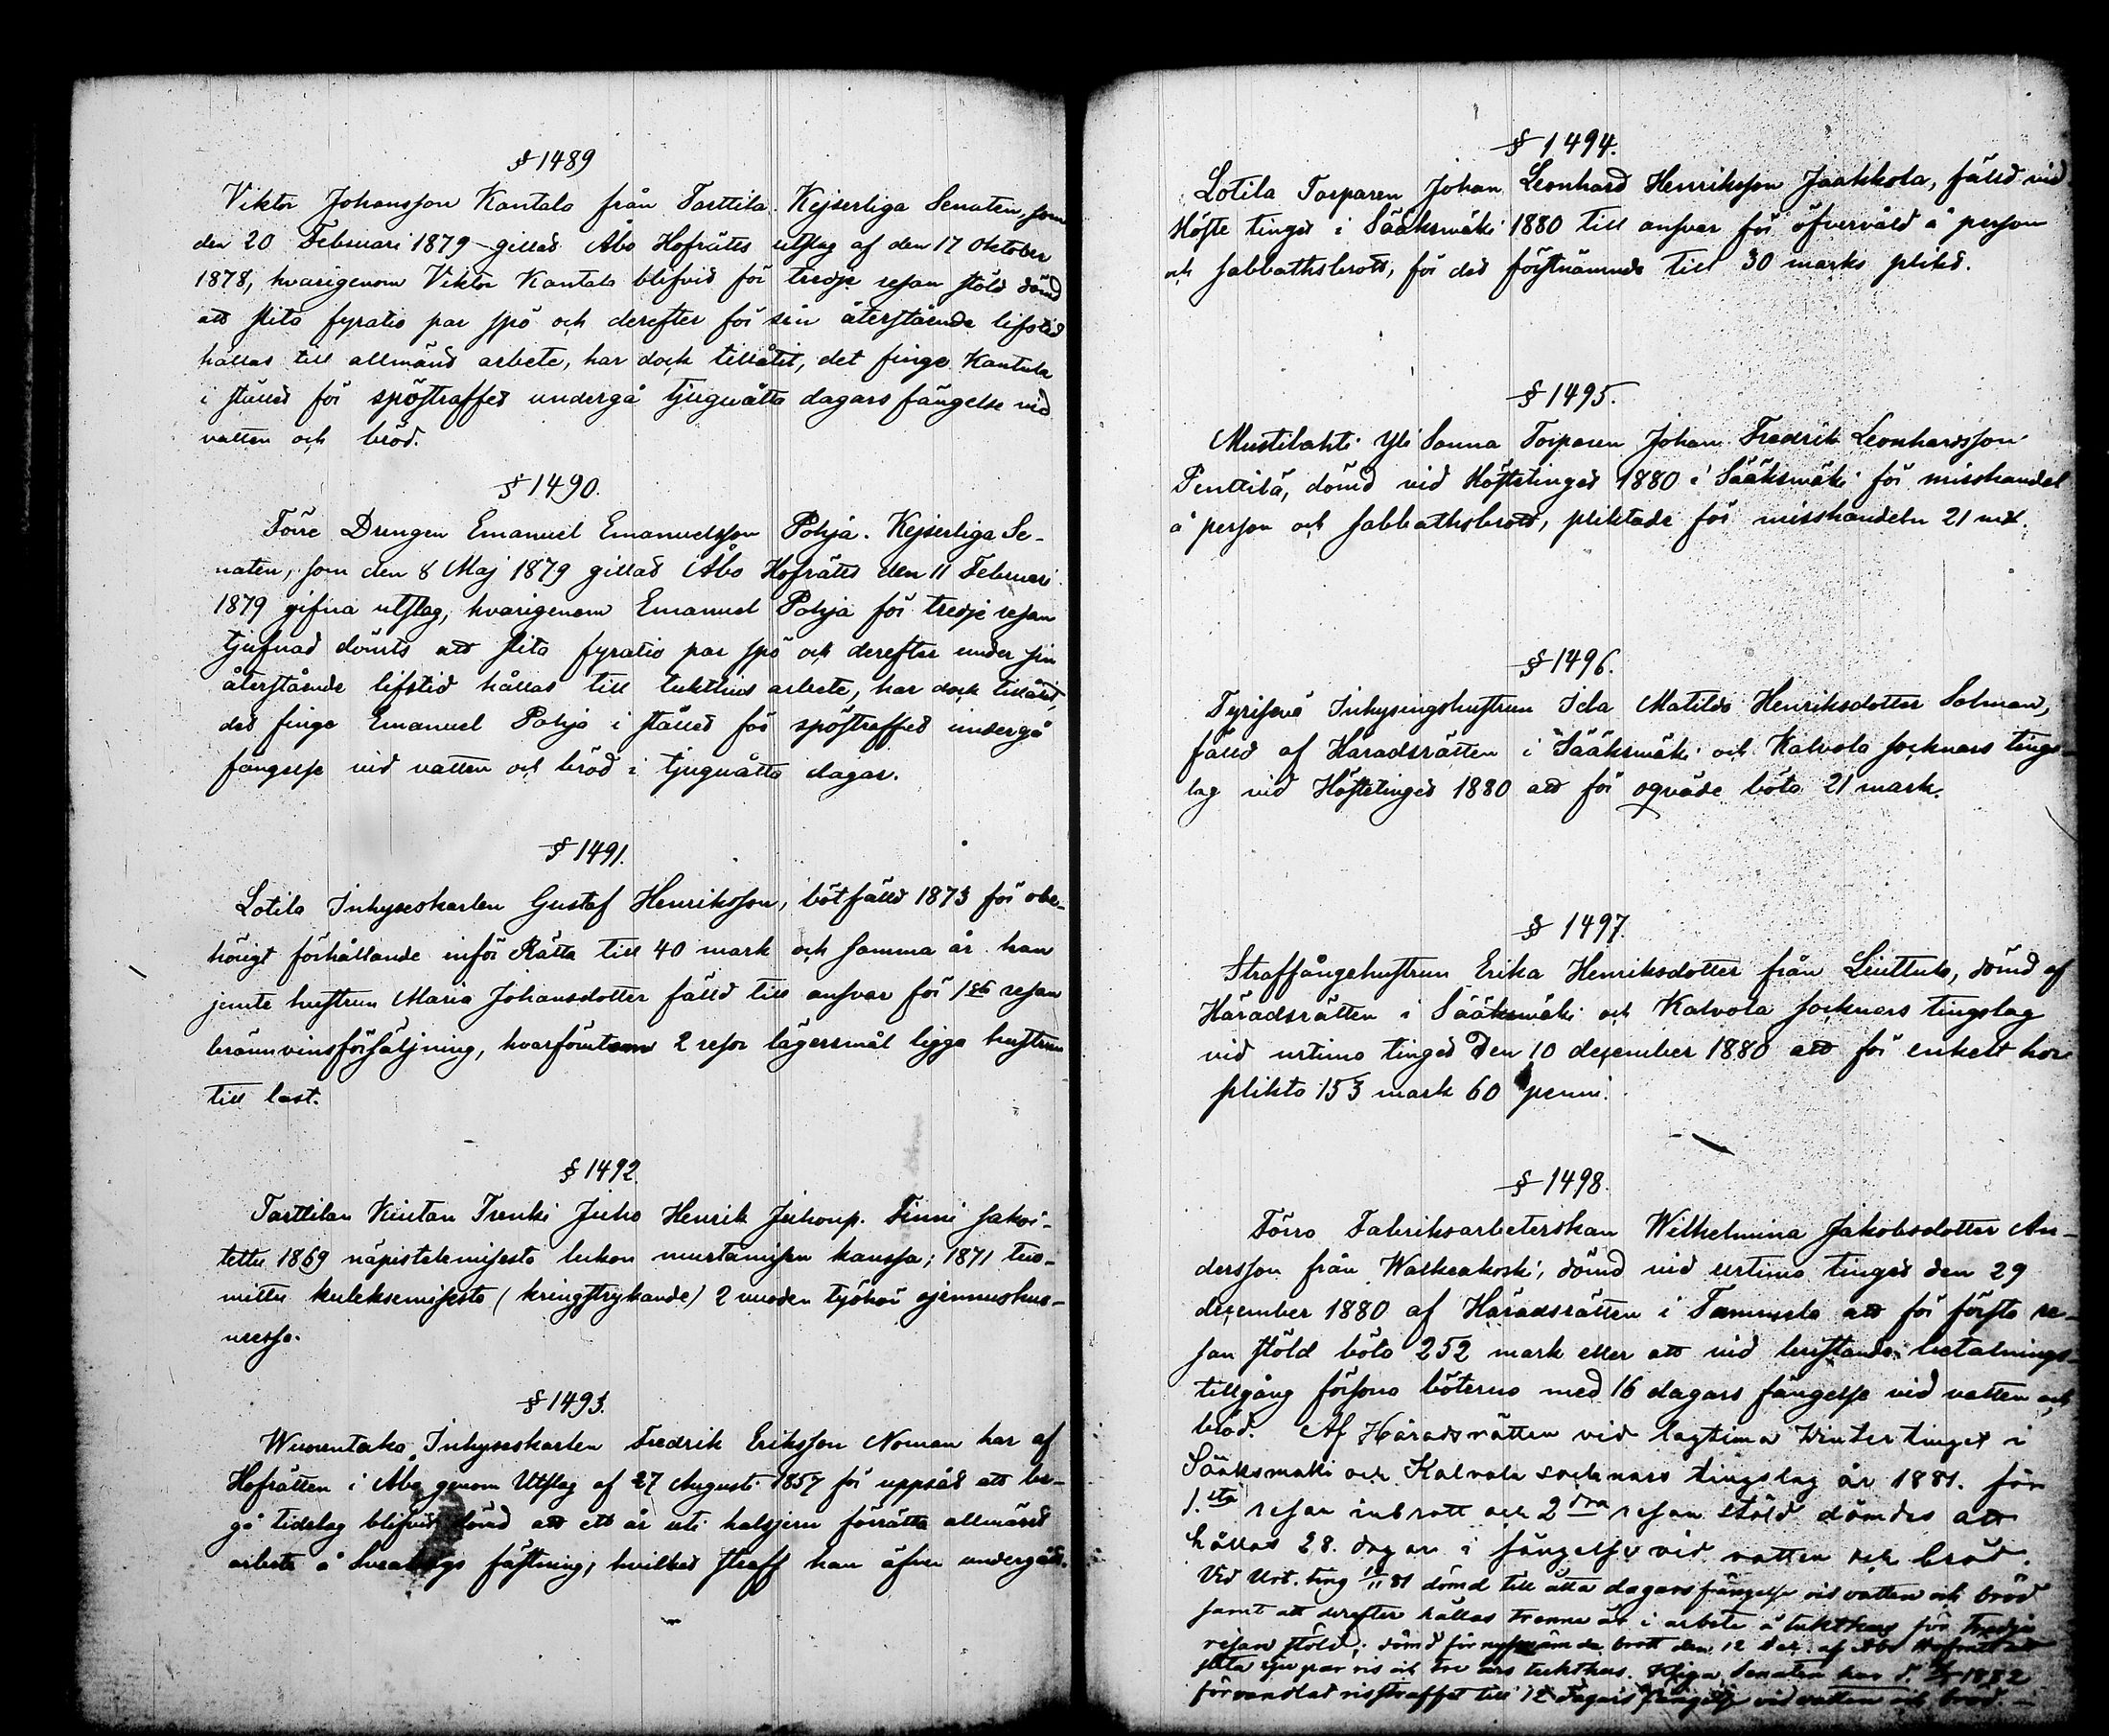 § 1489
Viktor Johansson Kantala från Tarttila. Kejserliga Senaten, som
den 20 Februari 1879 gillat Åbo Hofrätts utslag af den 17 Oktober
1878, hvarigenom Viktor Kantala blifvit för tredje resan stöld dömd
att slita fyratio par spö och derefter för sin återstående lifstid
hållas till allmänt arbete, har dock tillåtit, det finge Kantala
i stället för spöstraffet undergå tjuguåtta dagars fängelse vid
vatten och bröd.
§ 1490.
Förre Drengen Emanuel Emanuelsson Pohja. Kejserliga Se-
naten, som den 8 Maj 1879 gillat Åbo Hofrätts den 11 Februari
1879 gifna utslag, hvarigenom Emanuel Pohja för tredje resan
tjufnad dömts att slita fyratio par spö och derefter under sin
återstående lifstid hållas till tukthus arbete, har dock tillåtit,
det finge Emanuel Pohja i stället för spöstraffet undergå
fängelse vid vatten och bröd i tjuguåtta dagar.
§ 1491.
Lotila Inhyseskarlen Gustaf Henriksson, bötfälld 1873 för obe-
hörigt förhållande inför Rätta till 40 mark och samma år han
jemte hustrun Maria Johansdotter fälld till ansvar för 1sta resan
brännvinsförsäljning, hvarförutom 2 resor lägersmål ligga hustrun
till last.
§ 1492.
Tarttilan Kiutan Trenki Juho Henrik Juhonp. Finni sakoi-
tettu 1869 näpistelemisesta lukon murtamisen kanssa; 1871 tuo-
mittu kuleksemisesta (kringstrykande) 2 vuoden työhön ojennushuo-
neessa.
§ 1493.
Wuorentaka Inhyseskarlen Fredrik Eriksson Noman har af
Hofrätten i Åbo genom Utslag af 27 Augusti 1857 för uppsåt att be-
gå tidelag blifvit dömd att ett år uti halsjern förrätta allmänt
arbete å Sveaborgs fästning, hvilket straff han äfven undergått.
§ 1494.
Lotila Torparen Johan Leonhard Henriksson Jaakkola, fälld vid
Höste tinget i Sääksmäki 1880 till ansvar för öfvervåld å person
och sabbathsbrott, för det förstnämnda till 30 marks plikt.
§ 1495.
Mustilahti Yli Sanna Torparen Johan Fredrik Leonhardsson
Penttilä, dömd vid Höstetinget 1880 i Sääksmäki för misshandel
å person och sabbathsbrott, pliktade för misshandeln 21 mk.
§ 1496.
Tyrisevä Inhysingshustrun Ida Matilda Henriksdotter Salman,
fälld af Häradsrätten i Sääksmäki och Kalvola socknars tings-
lag vid Höstetinget 1880 att för oqväde böta 21 mark.
§ 1497.
Straffångehustrun Erika Henriksdotter från Liuttula, dömd af
Häradsrätten i Sääksmäki och Kalvola socknars tingslag
vid urtima tinget den 10 december 1880 att för enkelt hor
plikta 153 mark 60 penni.
§ 1498.
Förra Fabriksarbeterskan Wilhelmina Jakobsdotter An-
dersson från Walkeakoski, dömd vid urtima tinget den 29
december 1880 af Häradsrätten i Tammela att för första re-
san stöld böta 252 mark eller att vid bristande betalnings-
tillgång försona böterna med 16 dagars fängelse vid vatten och
bröd. Af Häradsrätten vid lagtima Vintertinget i
Sääksmäki och Kalvola socknars tingslag år 1881. för
1.sta resan inbrott och 2dra resan stöld dömdes att
hållas 28. dagar i fängelse vid vatten och bröd.
Vid Urt. ting 11 81 dömd till åtta dagars fängelse vid vatten och bröd
samt att derefter hållas trenne år i arbete å tukthus för tredje
resan stöld; dömd för nyssnämda brott den 12 Dec. af Åbo Hofrätt att
slita sju par ris och tre års tukthus. Kejs. Senaten har d. 1882
förvandlat risstraffet till 12 dagars fängelse vid vatten och bröd. —